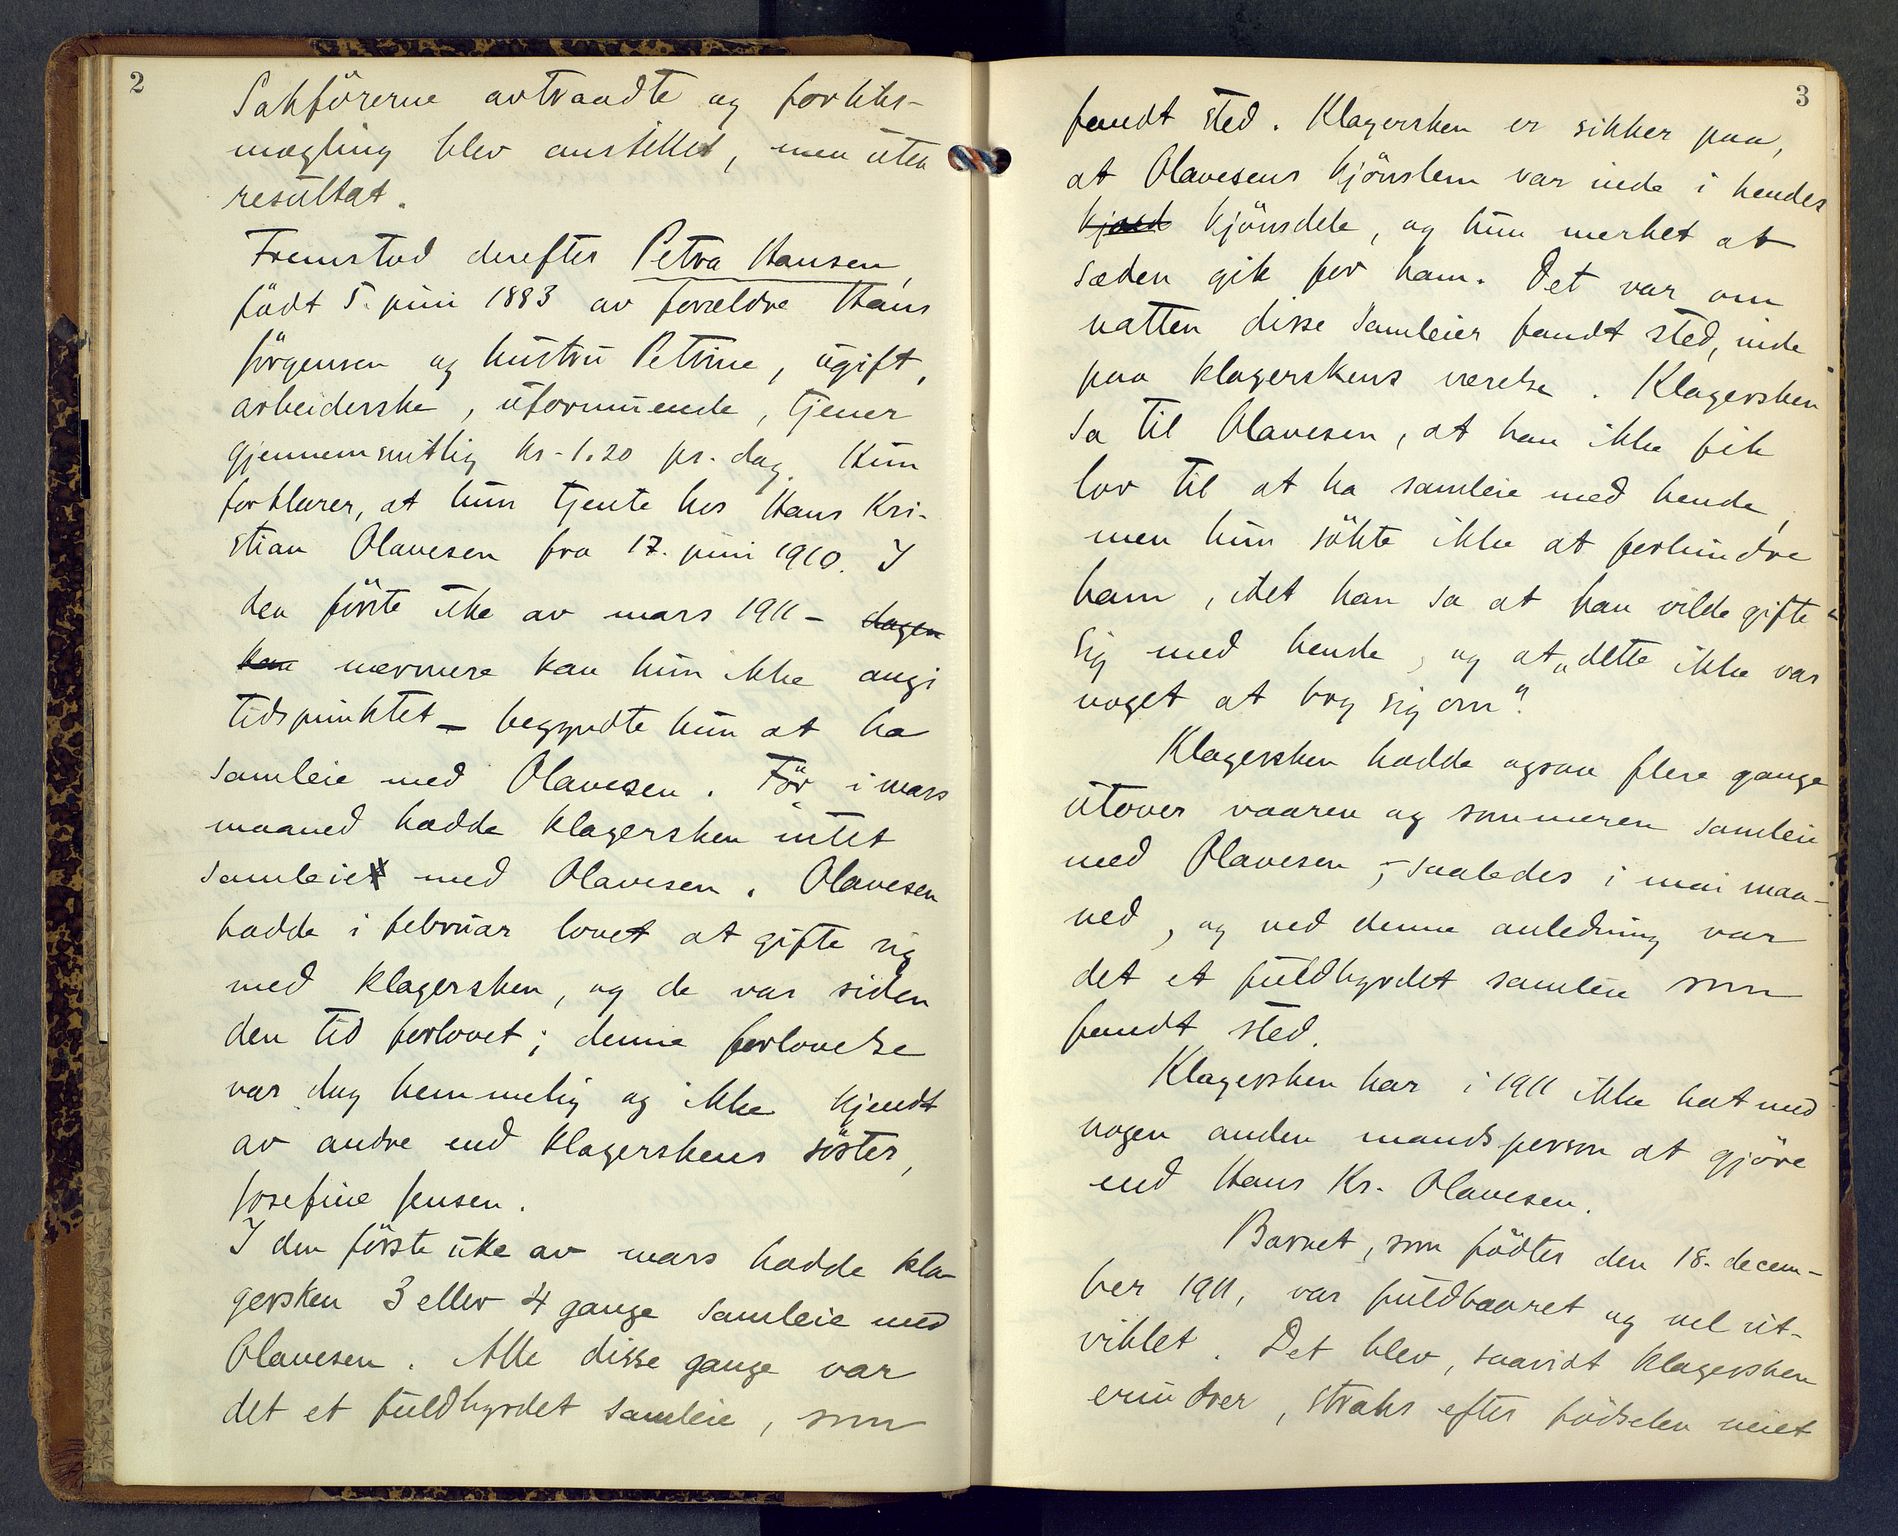 2
Sakførerne avtraadte og forliks-
mægling blev anstillet, men uten
resultat.
Fremstod derefter Petra Hansen,
født 5. juni 1883 av forældre Hans
Jørgensen og hustru Petrine, ugift,
arbeiderske, uformuende, tjener
gjennemsnitlig kr. 1.20 pr. dag. Hun
forklarer, at hun tjente hos Hans Kri-
stian Olavesen fra 17. juni 1910. I
den første uke av mars 1911 – dagen
kan nærmere kan hun ikke angi
tidspunktet – begyndte hun at ha
samleie med Olavesen. Før i mars
maaned hadde klagersken intet
samleie med Olavesen. Olavesen
hadde i februar lovet at gifte sig
med klagersken, og de var siden
den tid forlovet; denne forlovelse
var dog hemmelig og ikke kjendt
av andre end klagerskens søster,
Josefine Jensen.
I den første uke av mars hadde kla-
gersken 3 eller 4 gange samleie med
Olavesen. Alle disse gange var
det et fuldbyrdet samleie, som
3
fandt sted. Klagersken er sikker paa,
at Olavesens kjønslem var inde i hendes
kjønsdele, og hun merket at
sæden gik for ham. Det var om
natten disse samleier fandt sted, inde
paa klagerskens værelse. Klagersken
sa til Olavesen, at han ikke fik
lov til at ha samleie med hende,
men hun søkte ikke at forhindre
ham, idet han sa at han vilde gifte
sig med hende, og at „dette ikke var
noget at bry sig om".
Klagersken hadde ogsaa flere gange
utover vaaren og sommeren samleie
med Olavesen, – saaledes i mai maa-
ned, og ved denne anledning var
det et fuldbyrdet samleie som
fandt sted.
Klagersken har i 1911 ikke hat med
nogen anden mandsperson at gjøre
end Hans Kr. Olavesen.
Barnet, som fødtes den 18. decem-
ber 1911, var fuldbaaret og vel ut-
viklet. Det blev, saavidt klagersken
erindrer, straks efter fødselen veiet